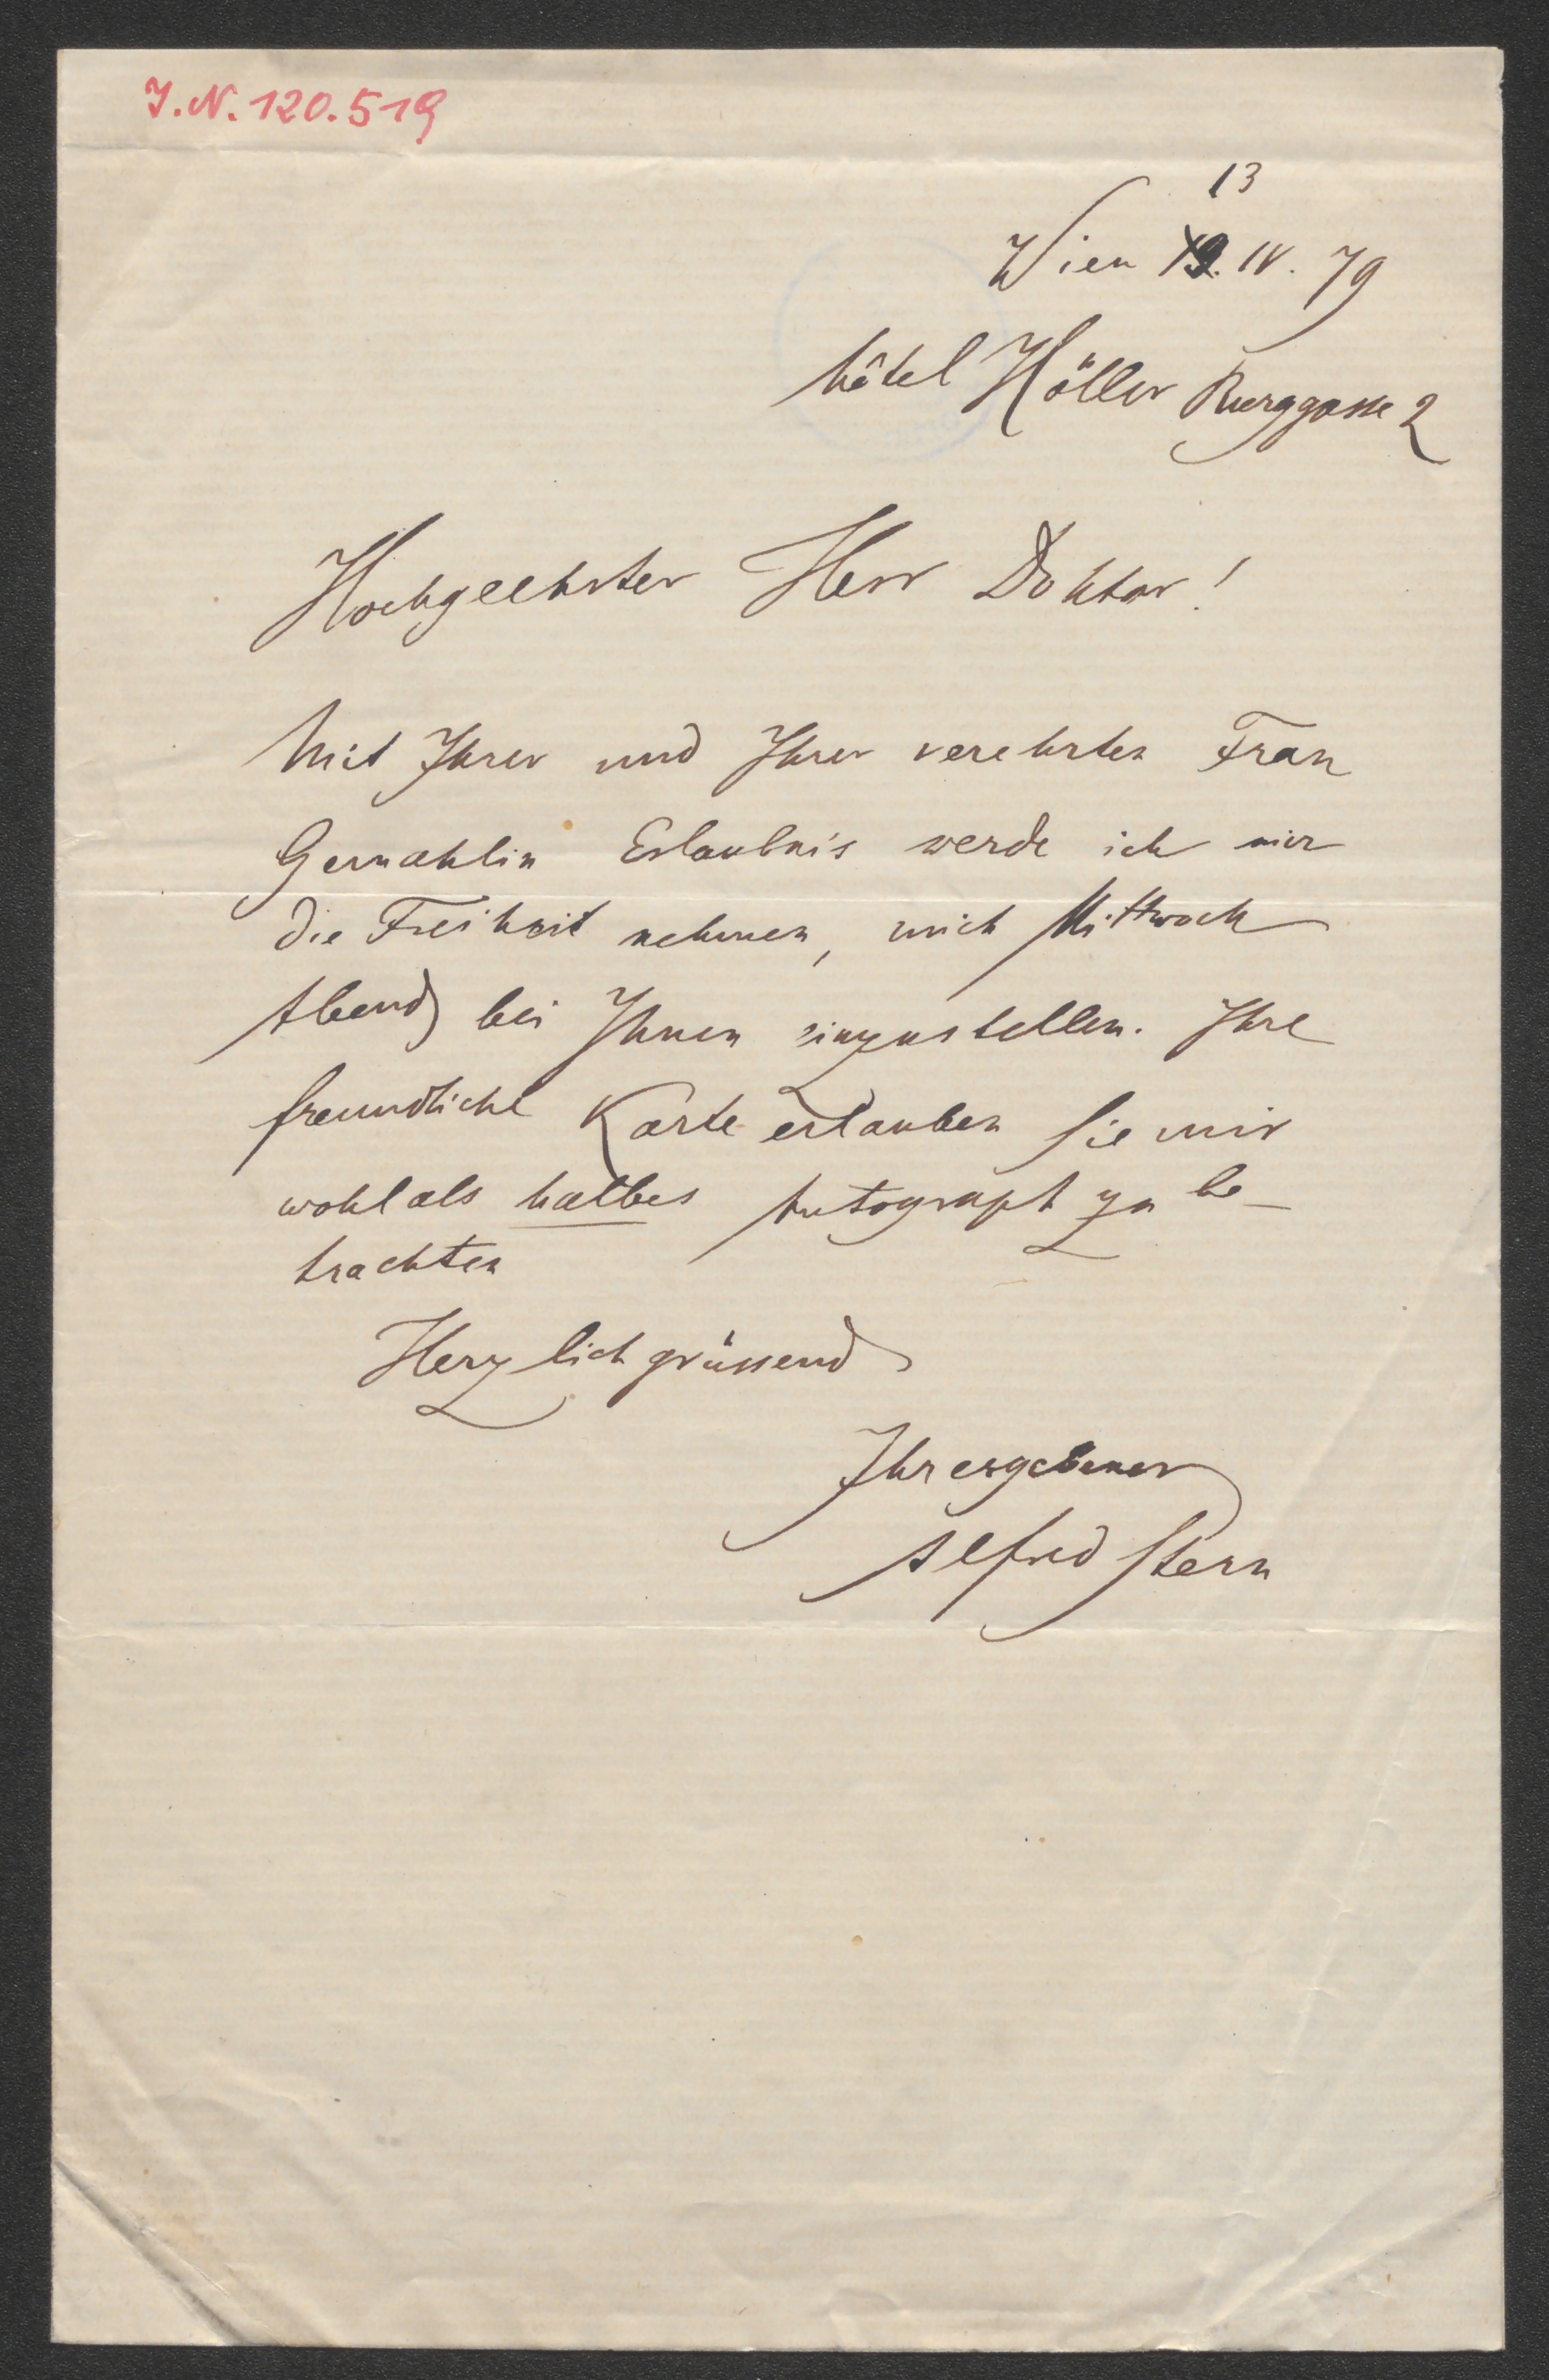 J.N. 120.519
13
Wien 19. IV. 79
hôtel Höller Burggasse 2
Hochgeehrter Herr Doktor!
Mit Ihrer und Ihrer verehrten Frau
Gemahlin Erlaubnis werde ich mir
die Freiheit nehmen, mich Mittwoch
Abend bei Ihnen einzustellen. Ihre
freundliche Karte erlauben Sie mir
wohl als halbes Autograph zu be-
trachten
Herzlich grüssend
Ihr ergebener
Alfred Stern